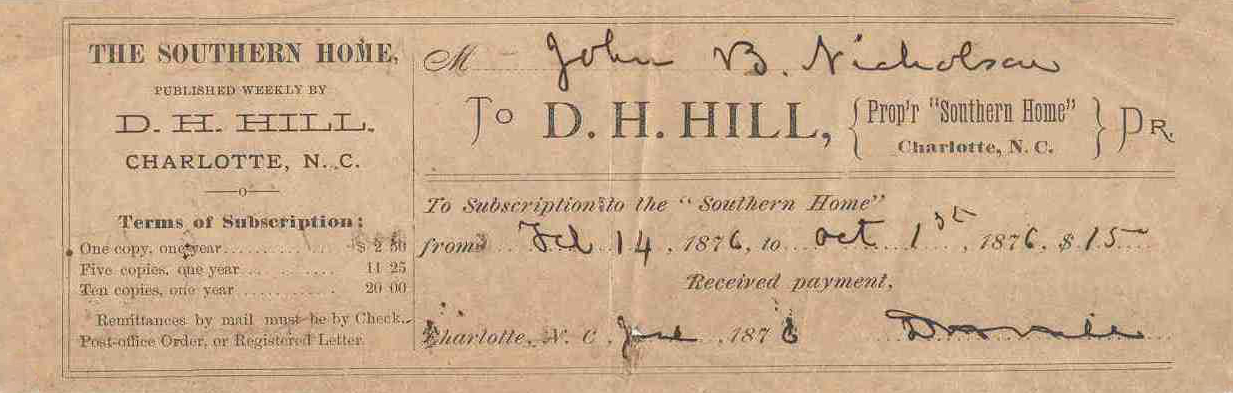 THE SOUTHERN HOME,
PUBLISHED WEEKLY BY
D. H. HILL.
CHARLOTTE, N. C.
Terms of Subscription:
One copy, one year $ 2 50
Five copies, one year 11 25
Ten copies, one year 20 00
Remittances by mail must be by Check,
Post-office Order, or Registered Letter.
M John B. Nicholson
To D. H. HILL, { Prop'r "Southern Home" } DR.
Charlotte, N. C.
To Subscription to the "Southern Home"
from Feb 14, 1876, to Oct 1st, 1876, $ 15
Received payment,
Charlotte, N. C. June, 1876